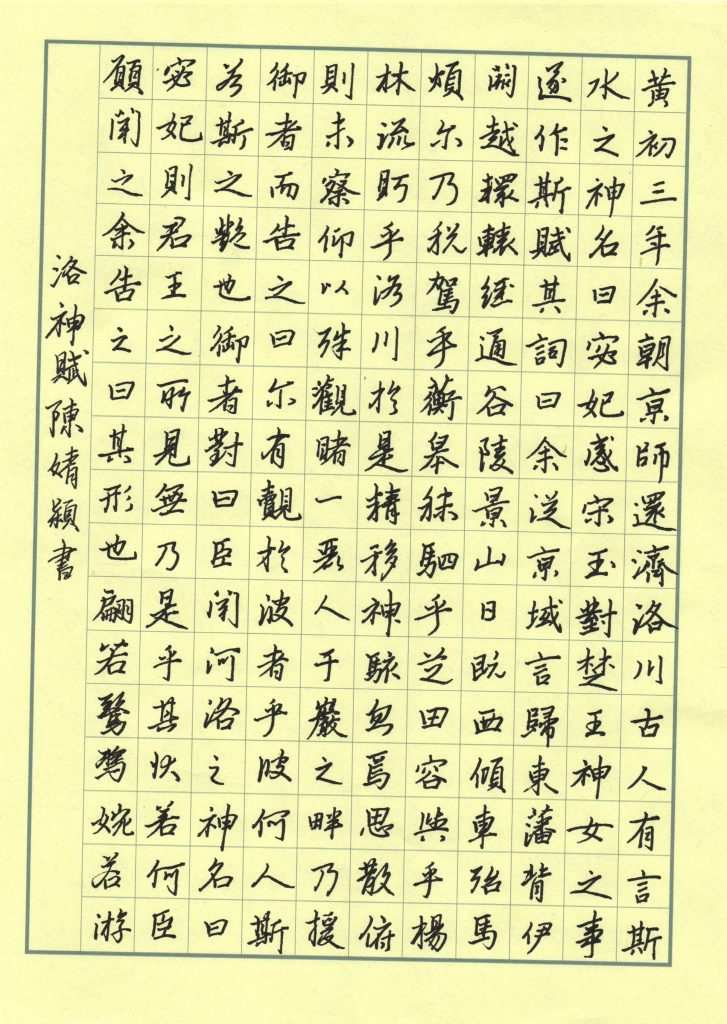 黃初三年余朝京師還濟洛川古人有言斯
水之神名曰宓妃感宋玉對楚王神女之事
遂作斯賦其詞曰余從京域言歸東藩背伊
闕越轘轅經通谷陵景山日既西傾車殆馬
煩尔乃税駕乎蘅皋秣駟乎芝田容與乎楊
林流眄乎洛川於是精移神駭忽焉思散俯
則未察仰以殊觀睹一麗人于巖之畔乃援
御者而告之曰尔有覿於彼者乎彼何人斯
若斯之艷也御者對曰臣聞河洛之神名曰
宓妃則君王之所見無乃是乎其狀若何臣
願聞之余告之曰其形也翩若驚鴻婉若游
洛神賦陳婧穎書